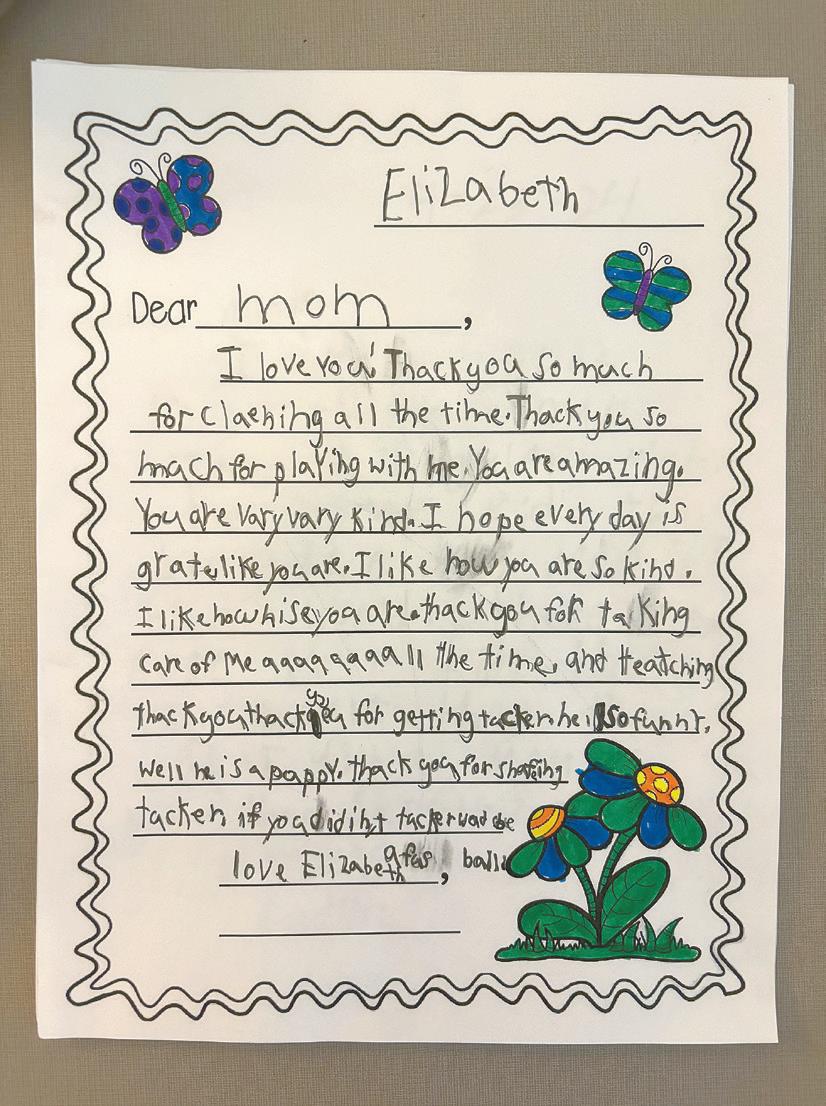 Elizabeth
Dear mom,
I love you! Thack you so much
for claening all the time. Thack you so
much for playing with me. You are amazing.
You are vary vary kind. I hope every day is
grate like you are. I like how you are so kind.
I like how hise you are. thack you for taking
care of me aaaaaaaall the time, and teatching
thack you thack you for getting tacker he is so funny.
Well he is a pappy. thack you for shafing
tacker if you didint tacker wad be
a fas ball
love Elizabeth,